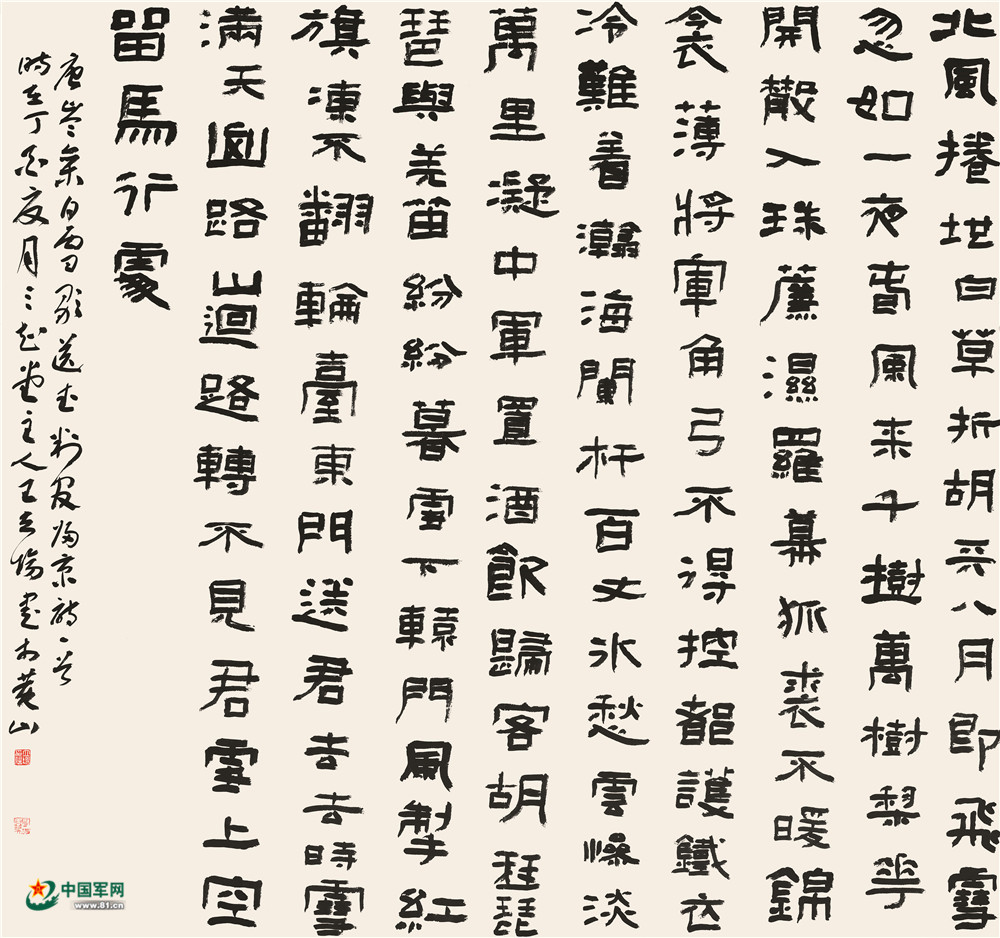 北風捲地白草折胡天八月即飛雪
忽如一夜春風来千樹萬樹梨花
開散入珠簾濕羅幕狐裘不暖錦
衾薄將軍角弓不得控都護鐵衣
冷難着瀚海闌杆百丈冰愁雲慘淡
萬里凝中軍置酒飲歸客胡琴琵
琶與羌笛紛紛暮雪下轅門風掣紅
旗凍不翻輪臺東門送君去去時雪
滿天山路山迴路轉不見君雪上空
留馬行處
唐岑參白雪歌送武判官歸京詩一首
時在丁酉夏月三堂主人王書於黄山
中国军网
www.81.cn